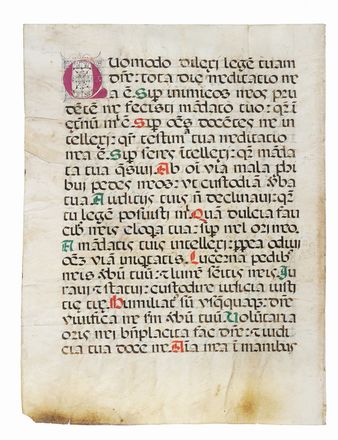 Quomodo dilexi legē tuam
dñe: tota die meditatio me
a ē. Sup inimicos meos pru
dētē me fecisti mādato tuo: qz ī
etñū m ē. Sup oēs docētes me in
tellexi: qz testimīa tua meditatio
mea ē. Sup senes ītellexi: qz māda
ta tua q̄sivi. Ab oī via mala phi
bui pedes meos: vt custodiā vba
tua A iudicijs tuis nī declinavi: qz
tu legē posuisti m̄. Quā dulcia fau
cibz meis eloqa tua: sup mel ori meo.
A mādatis tuis intellexi: ppea odivi
oēm viam iniqtatis. Lucerna pedibz
meis vbū tuū: & lumē sēitis meis. Iu
ravi & statui: custodire iudicia iusti
tie tue. Humiliatz sū vsqquaqz: dñe
vivifica me sm vbū tuū. Voluntaria
oris mei bñplacita fac dñe: & iudi
cia tua doce me. Aīa mea ī manibus